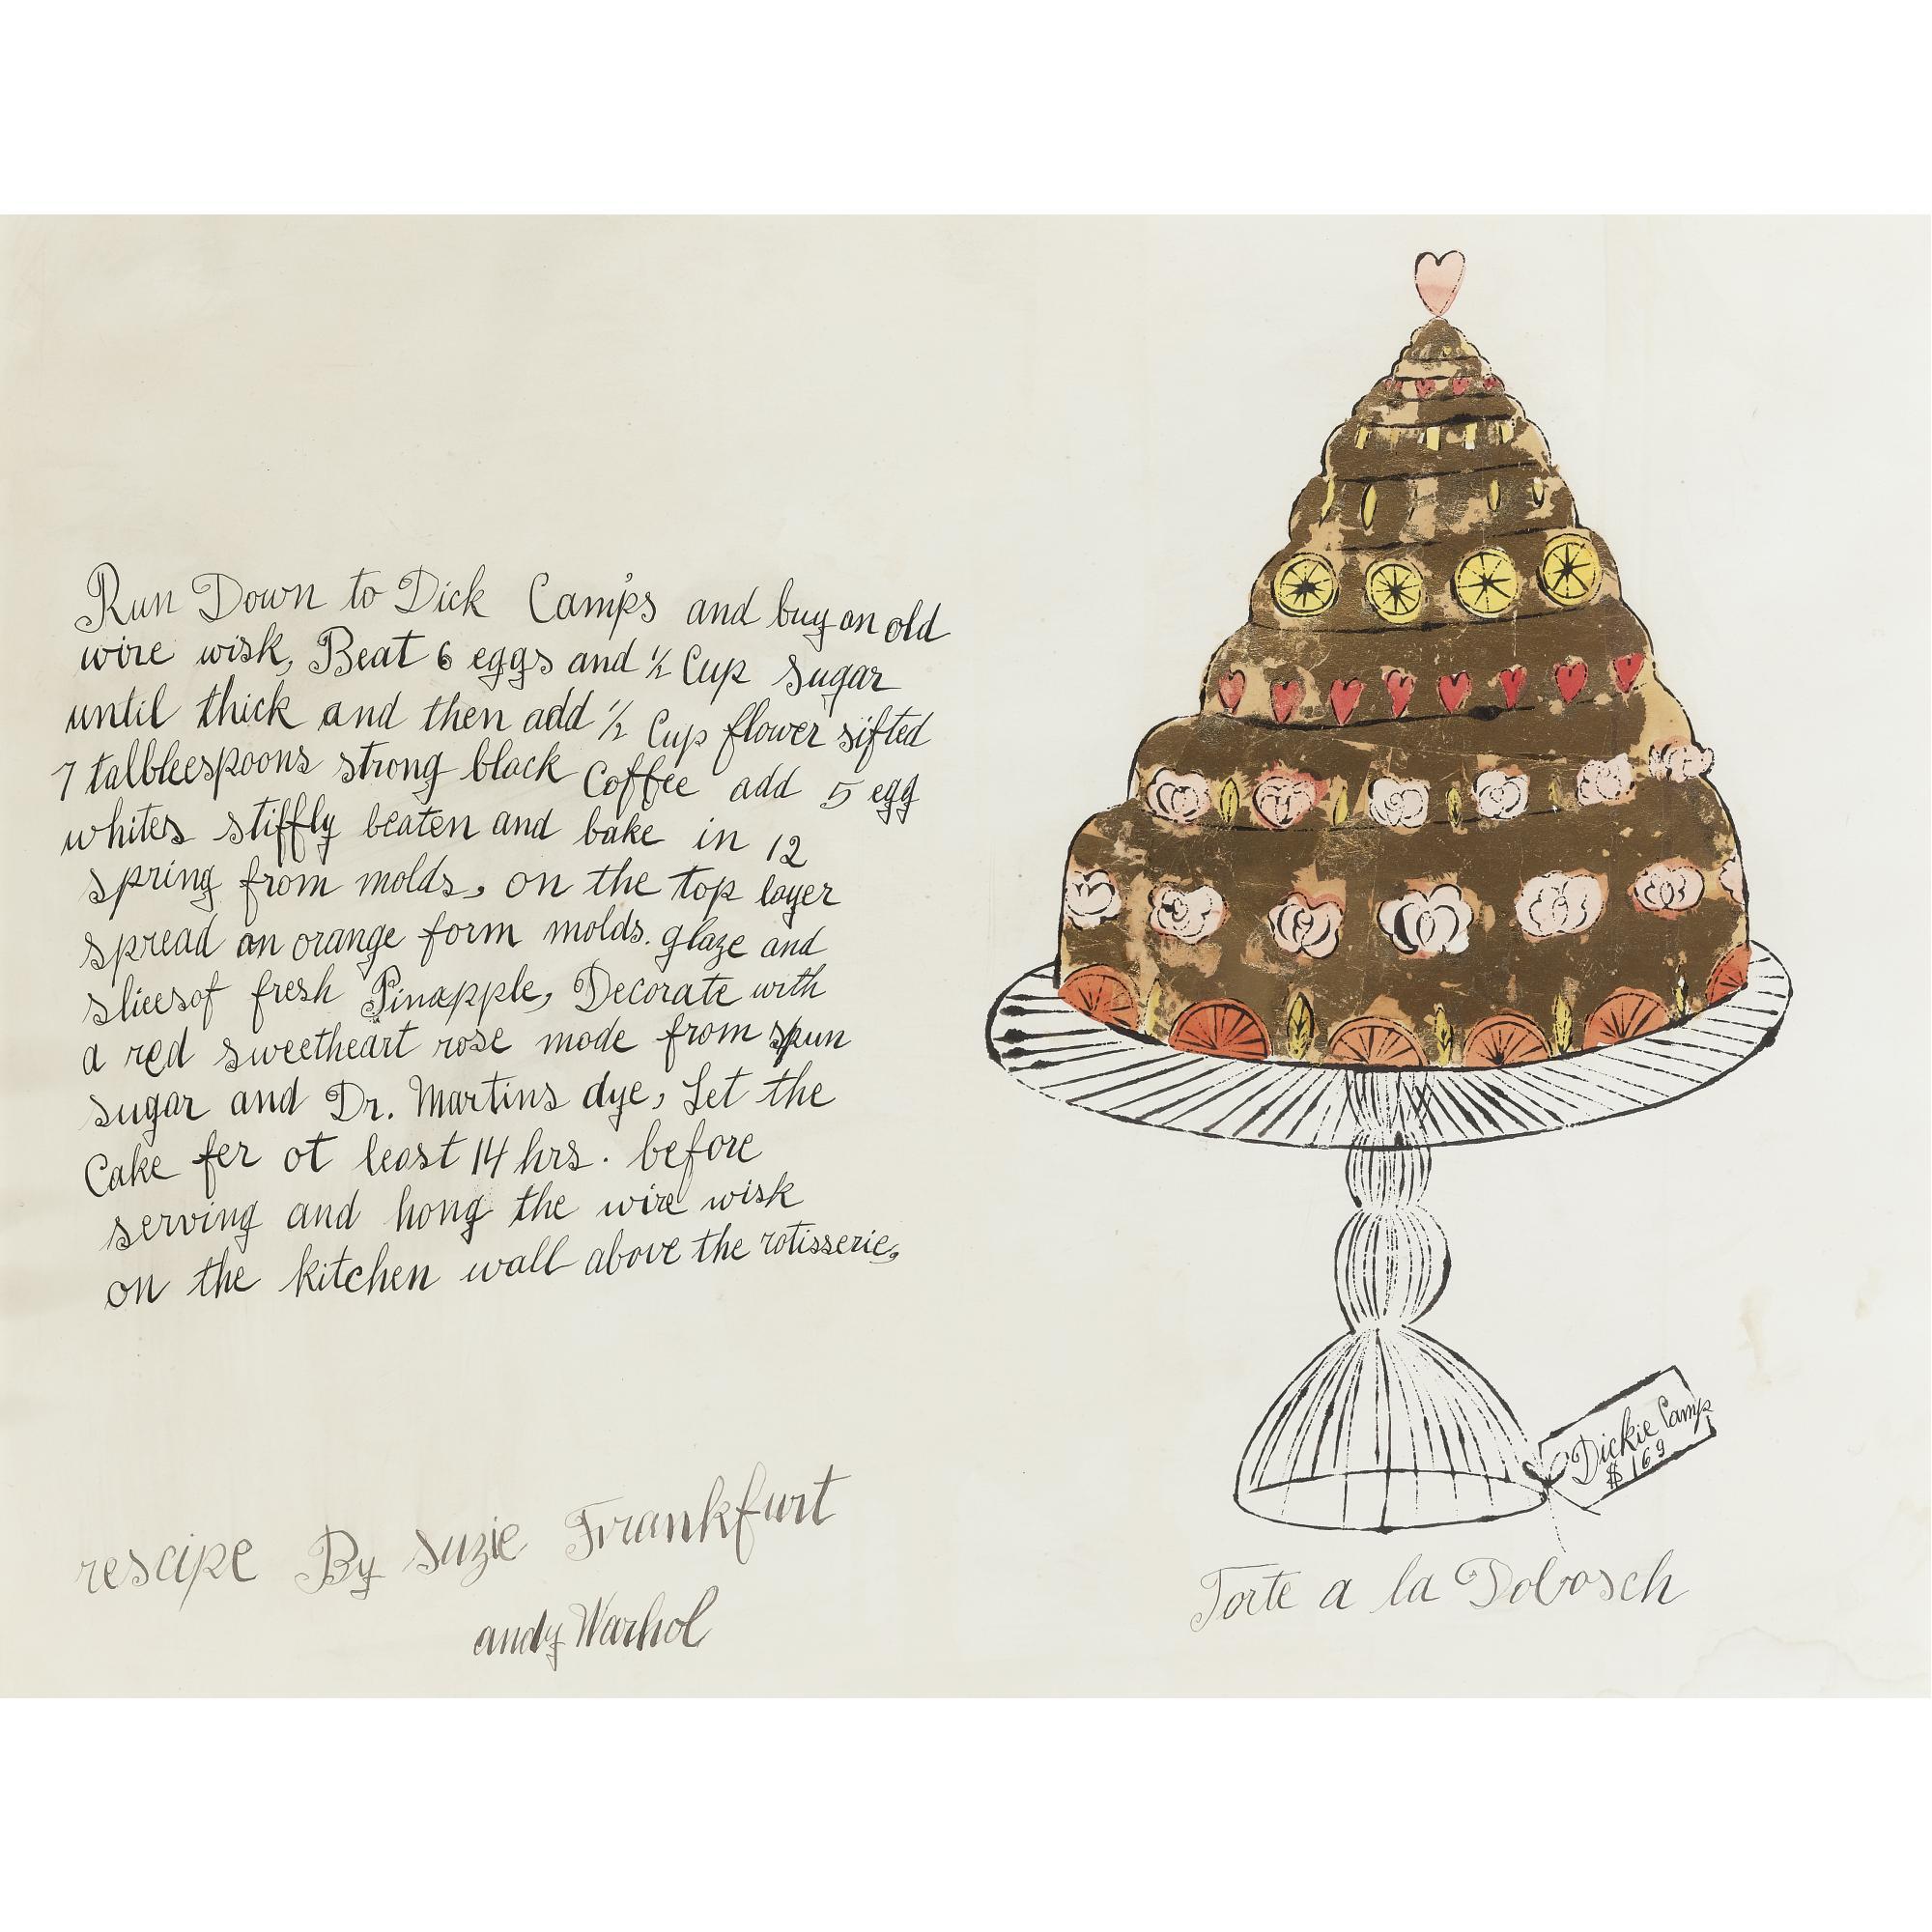 Run Down to Dick Camp's and buy an old
wire wisk, Beat 6 eggs and ½ Cup sugar
until thick and then add ½ Cup flower sifted
7 talbleespoons strong black Coffee add 5 egg
whites stiffly beaten and bake in 12
spring from molds, on the top layer
spread an orange form molds. glaze and
slicesof fresh Pinapple, Decorate with
a red sweetheart rose made from spun
sugar and Dr. Martins dye, Let the
Cake fer at least 14 hrs. before
serving and hang the wire wisk
on the kitchen wall above the rotisserie,
rescipe By Suzie Frankfurt
andy Warhol
Dickie Camp
$169
Torte a la Dobosch